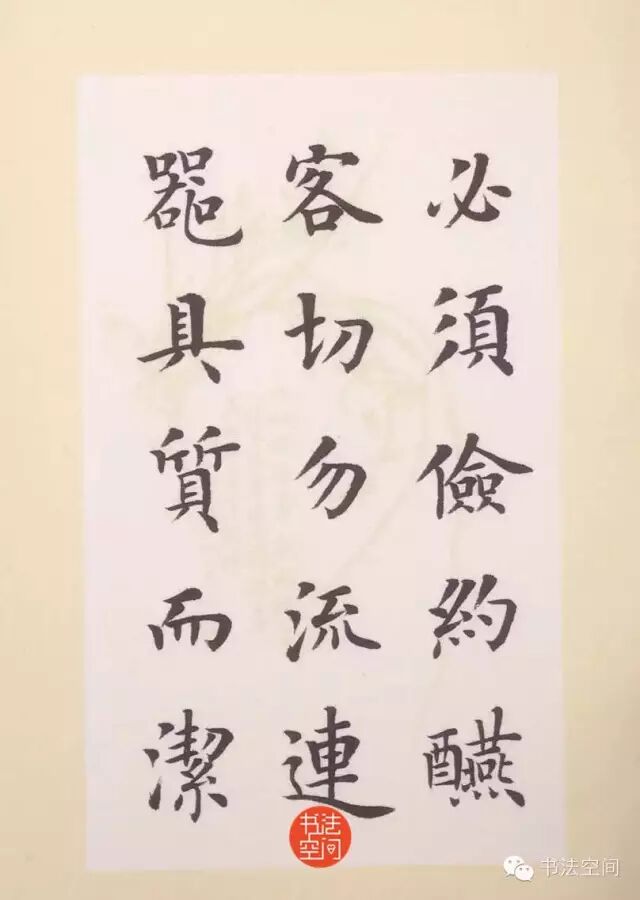 必須儉約醼
客切勿流連
噐具質而潔
书法
空间
书法空间